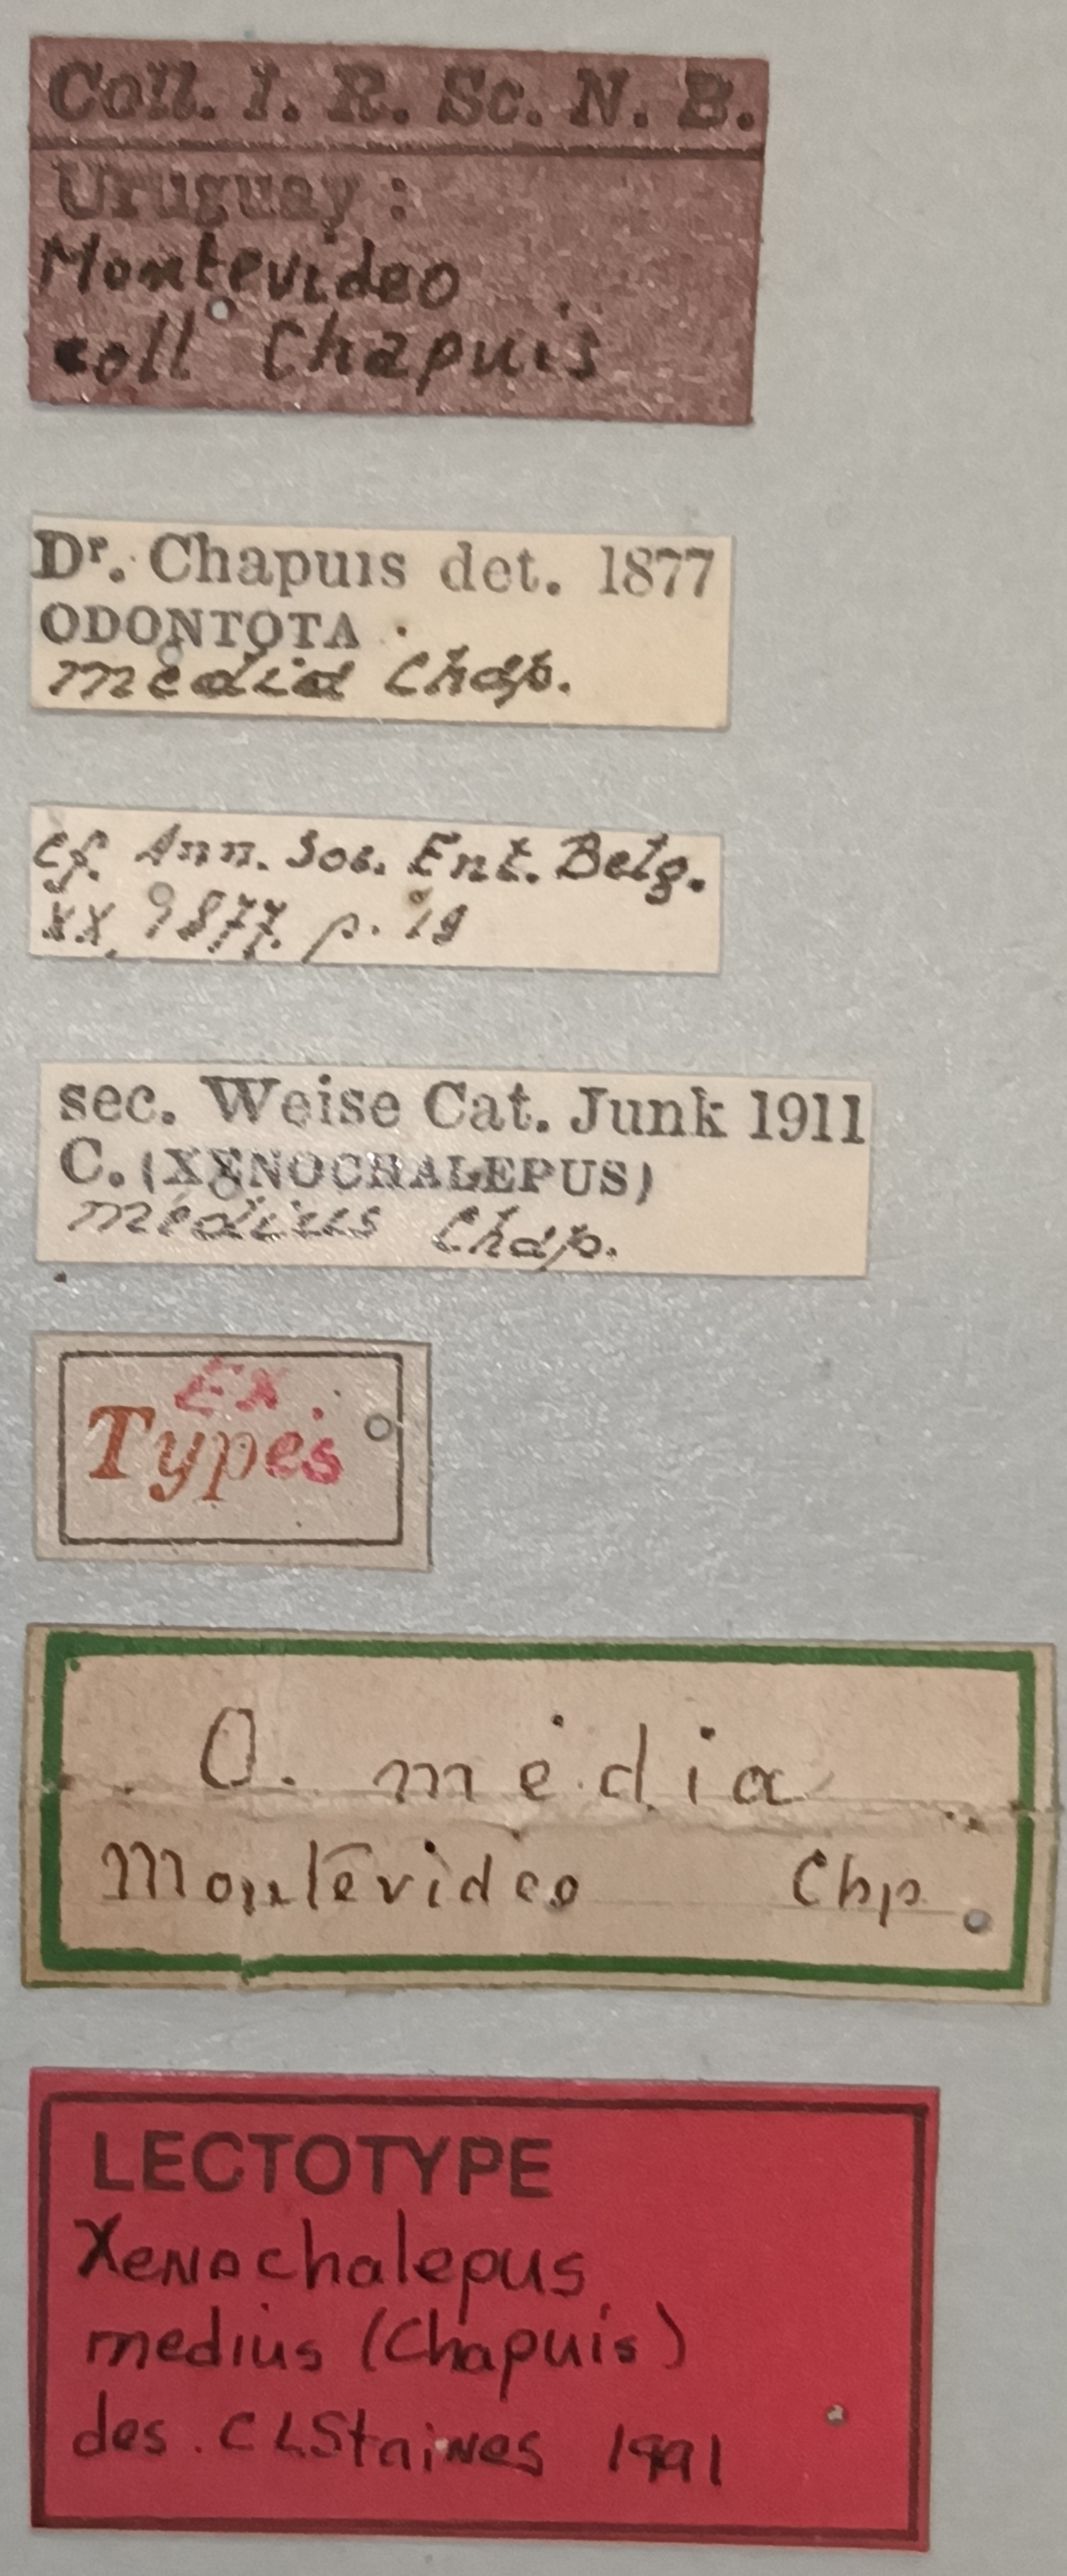 Coll. I. R. Sc. N. B.
Uruguay :
Montevideo
coll Chapuis
Dr. Chapuis det. 1877
ODONTOTA
media Chap.
cf. Ann. Soc. Ent. Belg.
XX, 1877. p. 19
sec. Weise Cat. Junk 1911
C. (XENOCHALEPUS)
medius Chap.
Ex.
Types
O. media
Montevideo Chp.
LECTOTYPE
Xenochalepus
medius (Chapuis)
des. CLStaines 1991